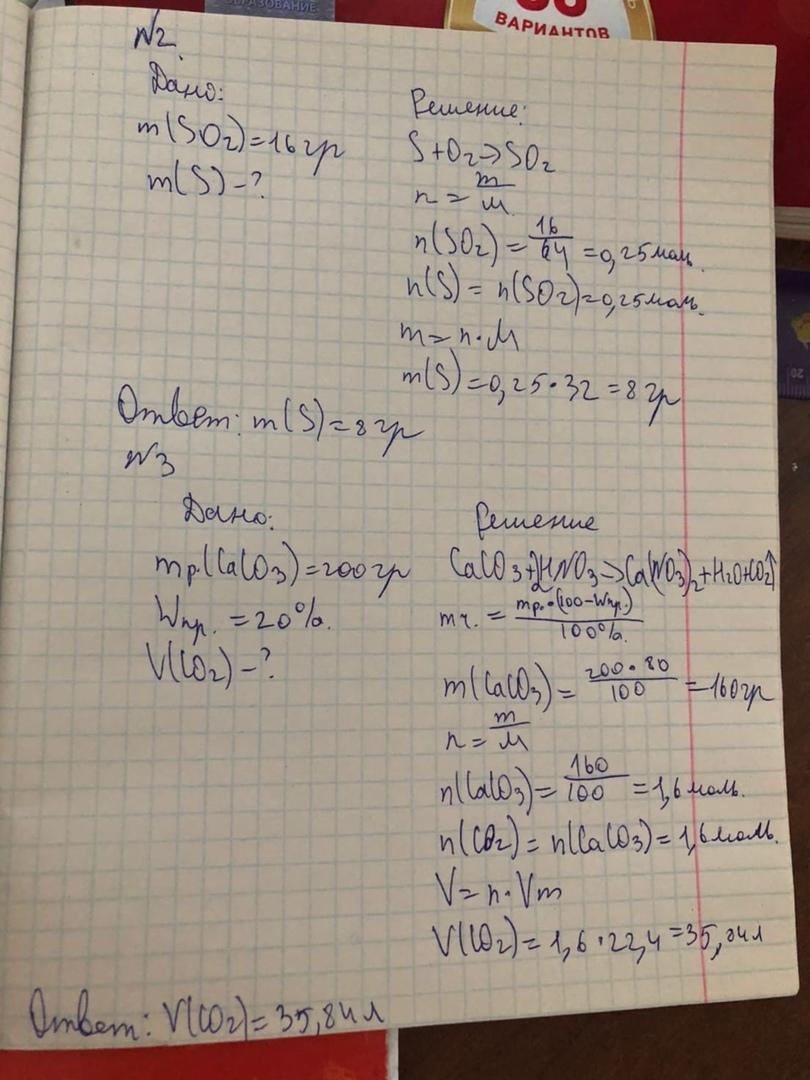 ОБРАЗОВАНИЕ
ВАРИАНТОВ
N2.
Дано:
m(SO₂)=16гр
m(S)-?
Решение:
S+O₂→SO₂
n = m/M
n(SO₂) = 16/64 = 0,25моль.
n(S) = n(SO₂)=0,25моль.
m=n·M
m(S)=0,25·32=8гр
Ответ: m(S)=8гр
N3
Дано:
mр(CaCO₃)=200гр
Wпр. =20%.
V(CO₂)-?
Решение
CaCO₃+2HNO₃→Ca(NO₃)₂+H₂O+CO₂↑
mч. = mр.·(100-Wпр.)/100%.
m(CaCO₃)= 200·80/100 =160гр
n = m/M
n(CaCO₃)= 160/100 =1,6моль.
n(CO₂)=n(CaCO₃)=1,6моль.
V=n·Vm
V(CO₂)=1,6·22,4=35,84л
Ответ: V(CO₂)=35,84л
20